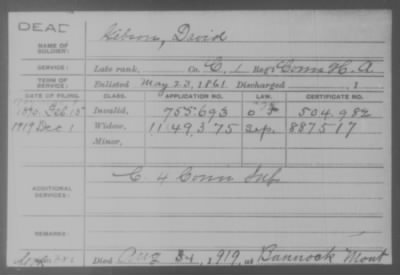 DEAD
NAME OF SOLDIER: Gibson, David
SERVICE: Late rank, Co. C, 1 Reg't Conn H. A.
TERM OF SERVICE: Enlisted May 23, 1861 Discharged , 1
DATE OF FILING. CLASS. APPLICATION NO. LAW. CERTIFICATE NO.
1890 Feb 15 Invalid, 755.693 504.982
1919 Dec 1 Widow, 1149375 887517
Minor,
ADDITIONAL SERVICES: C. 4 Conn Inf.
REMARKS:
Died Aug , 1919, at Bannock Mont